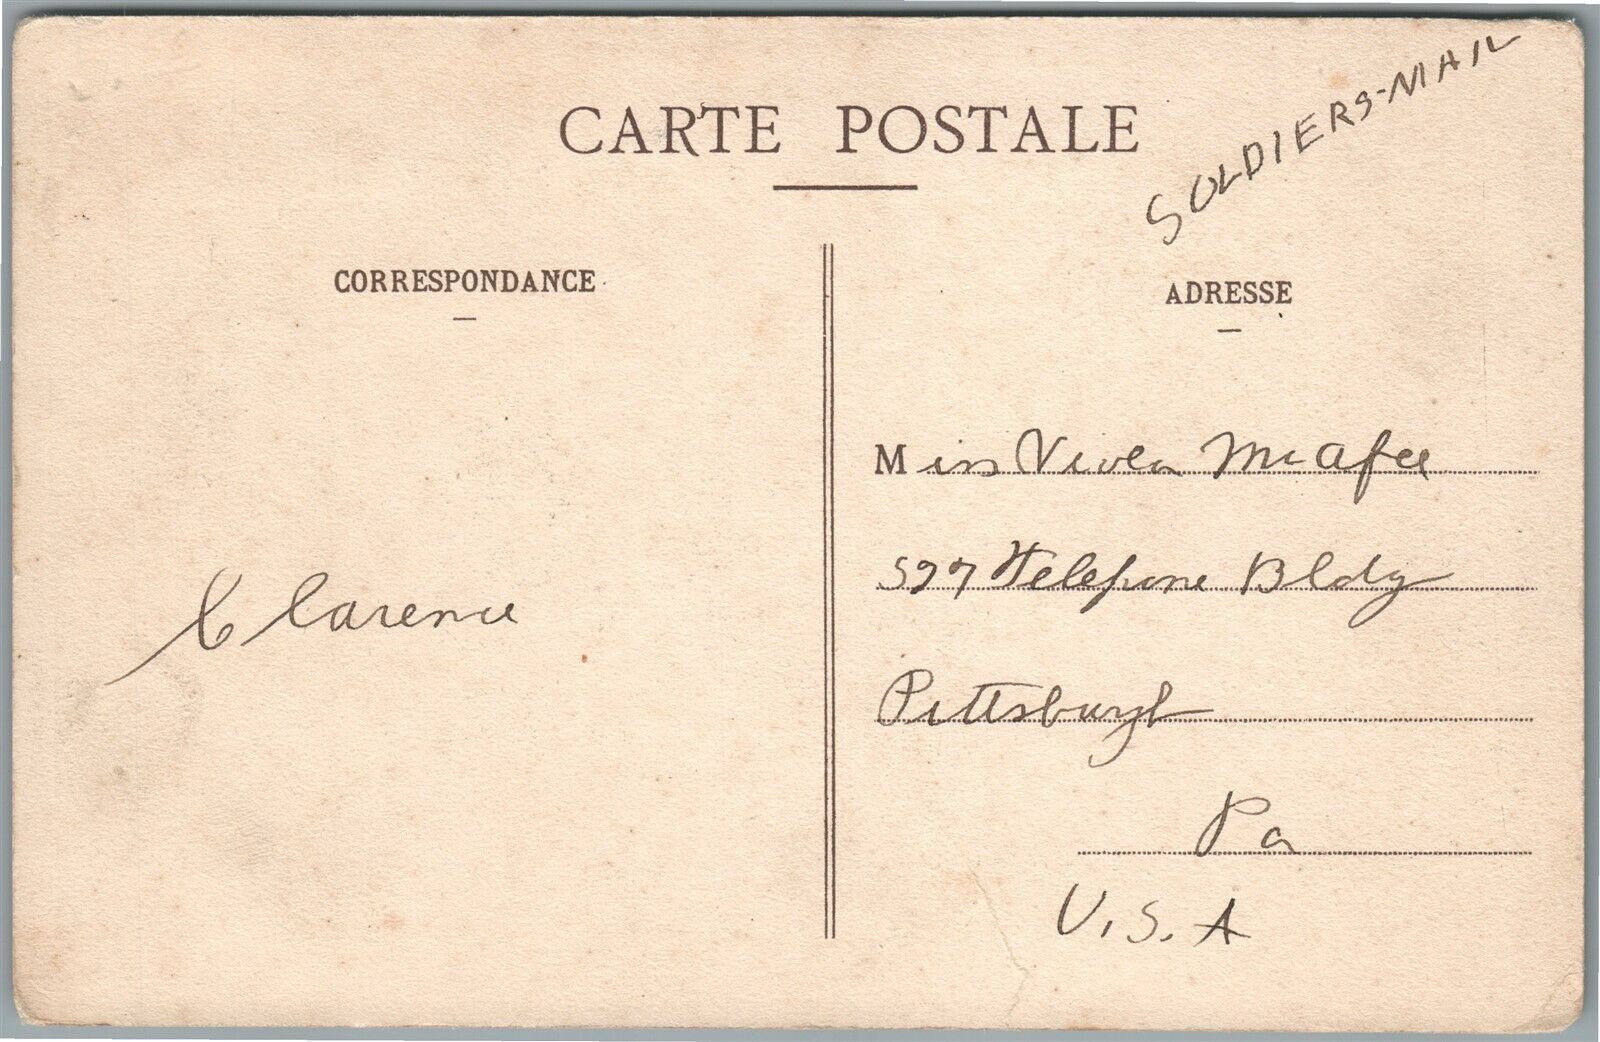 CARTE POSTALE
SOLDIERS-MAIL
CORRESPONDANCE
Clarence
ADRESSE
Miss Viola McAfee
527 Telepone Bldg
Pittsburgh
Pa
U.S.A